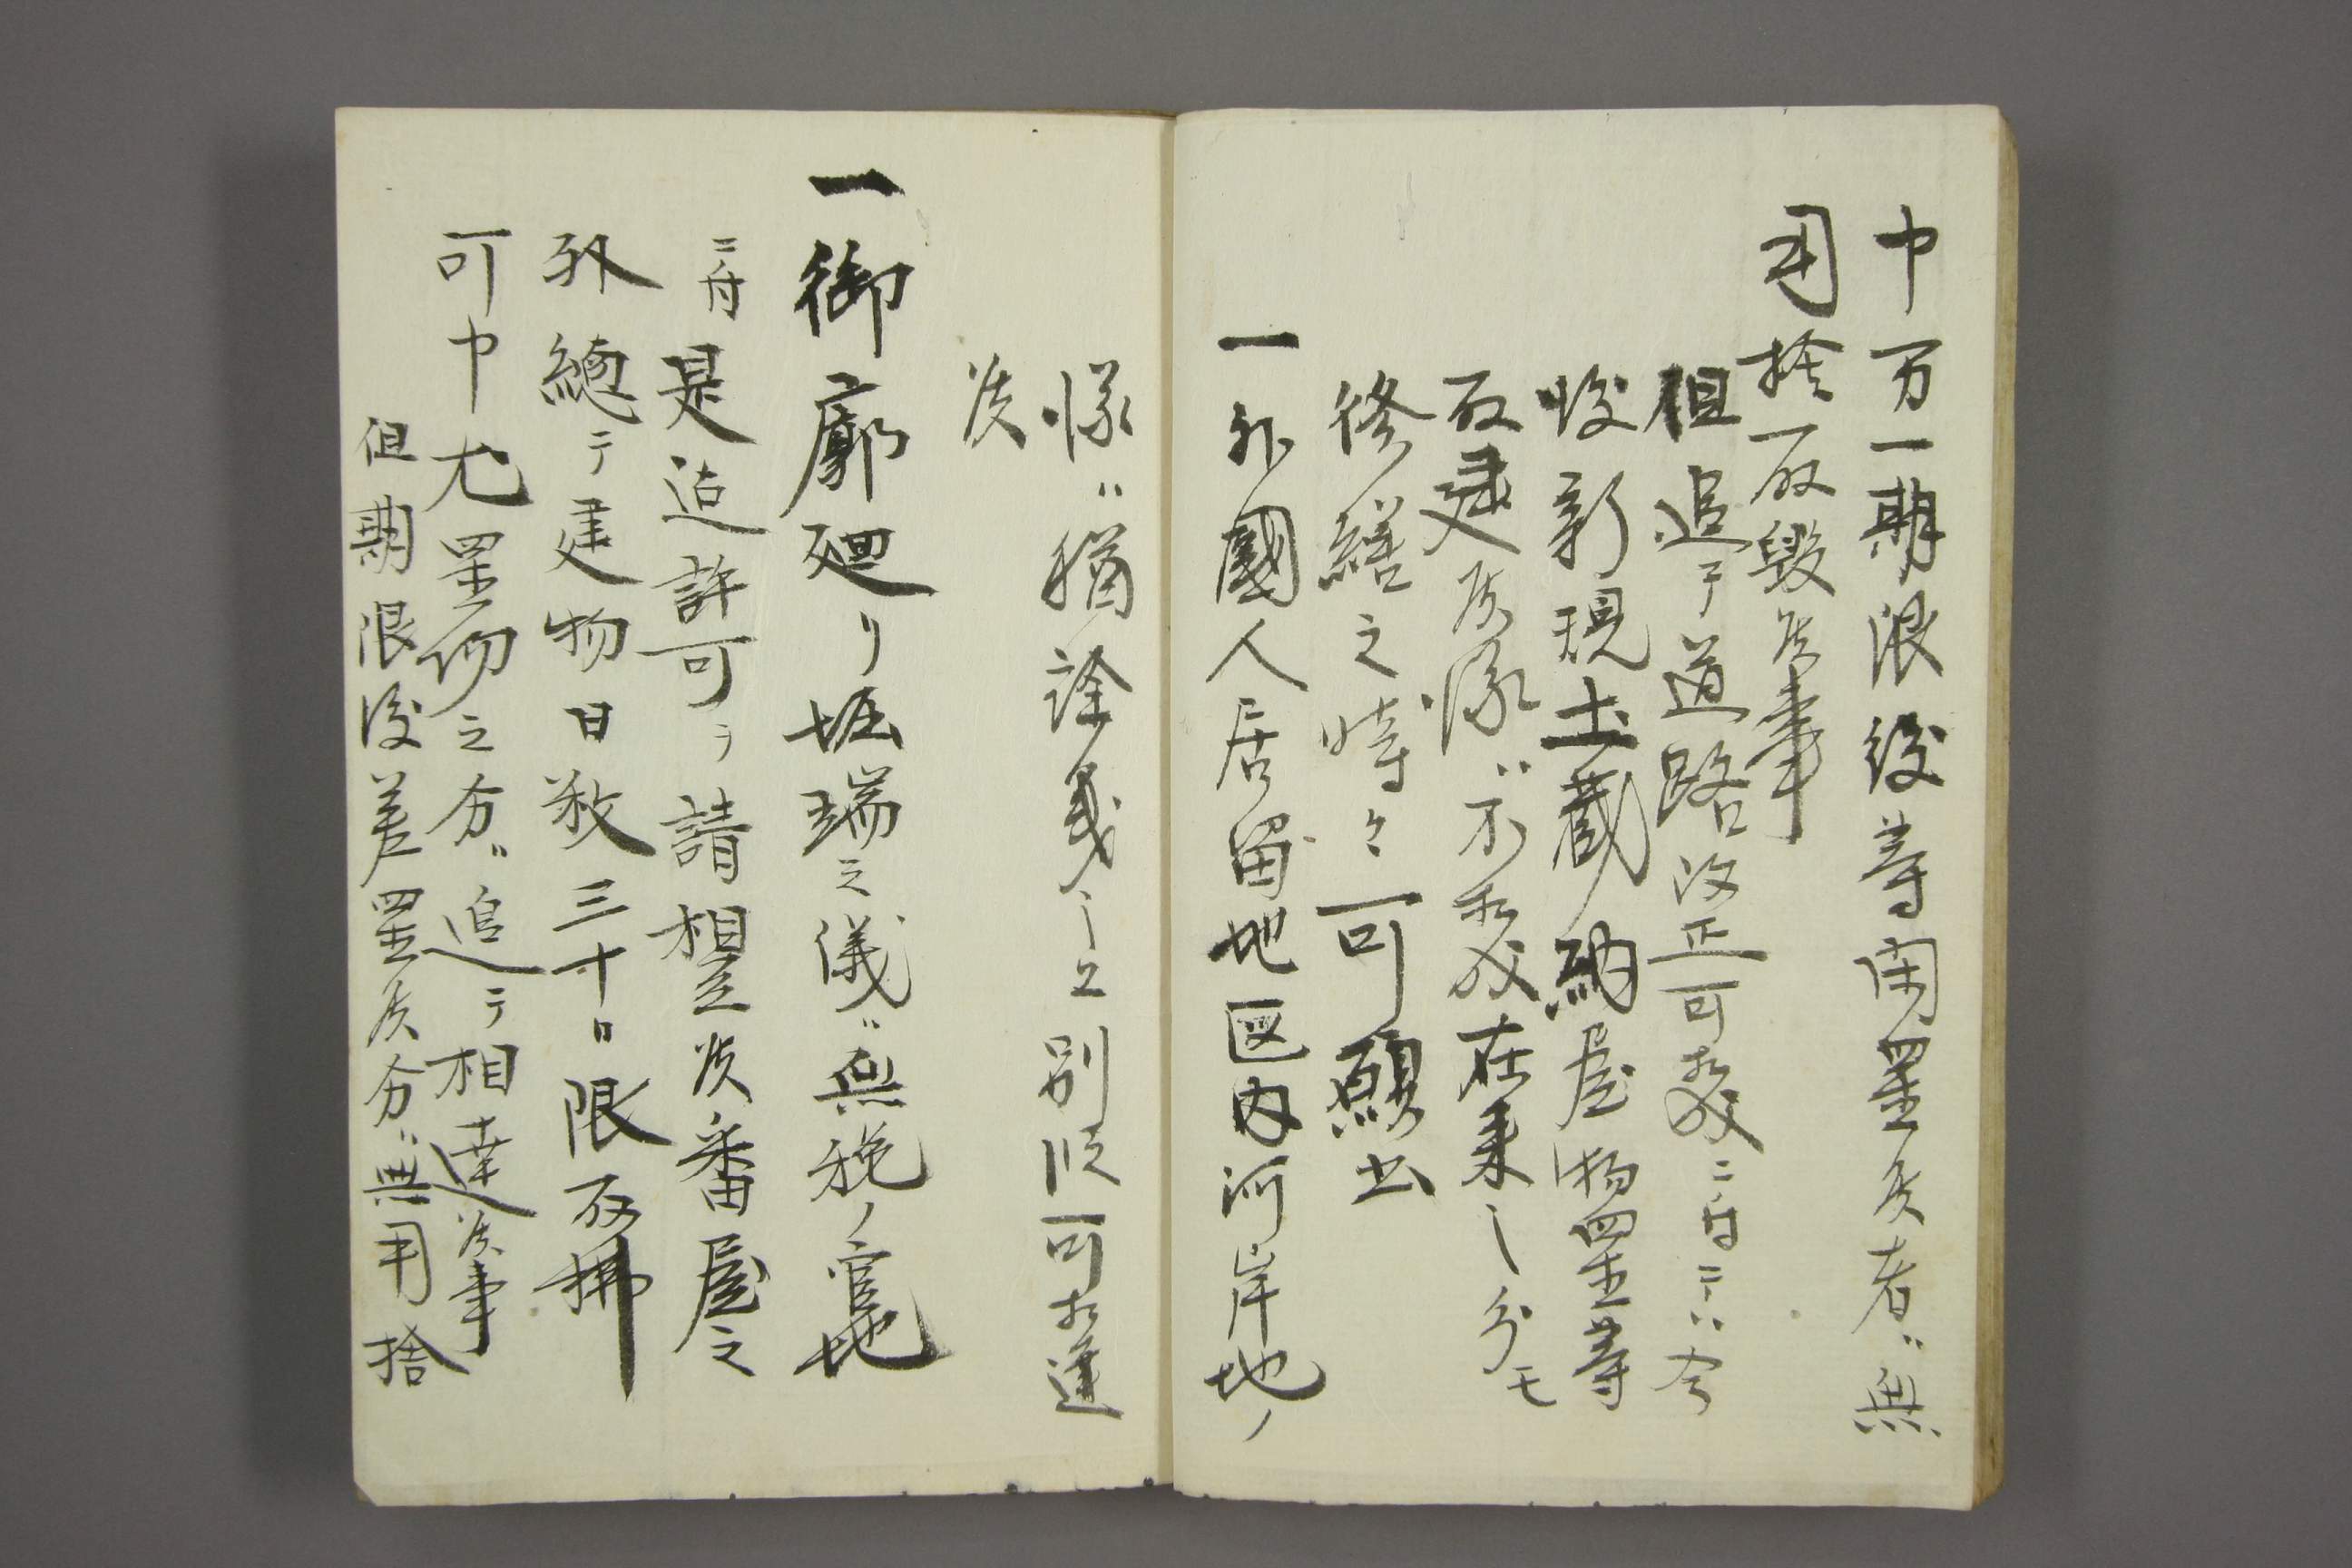 申万一期限後等閑置候者ハ無
用捨取毀候事
但追テ道路改正可致ニ付テハ今
後新規土蔵納屋物置等
取建候儀ハ不相成在来之分モ
修繕之時々可願出
一外國人居留地区内河岸地ノ
儀ハ猶詮義之上別段可相達
候
一御廓廻リ堀端之儀ハ無税ノ官地
ニ付是迄許可ヲ請相立候番屋之
外總テ建物日数三十日限取拂
可申尤置物之分ハ追テ相達候事
但期限後差置候分ハ無用捨